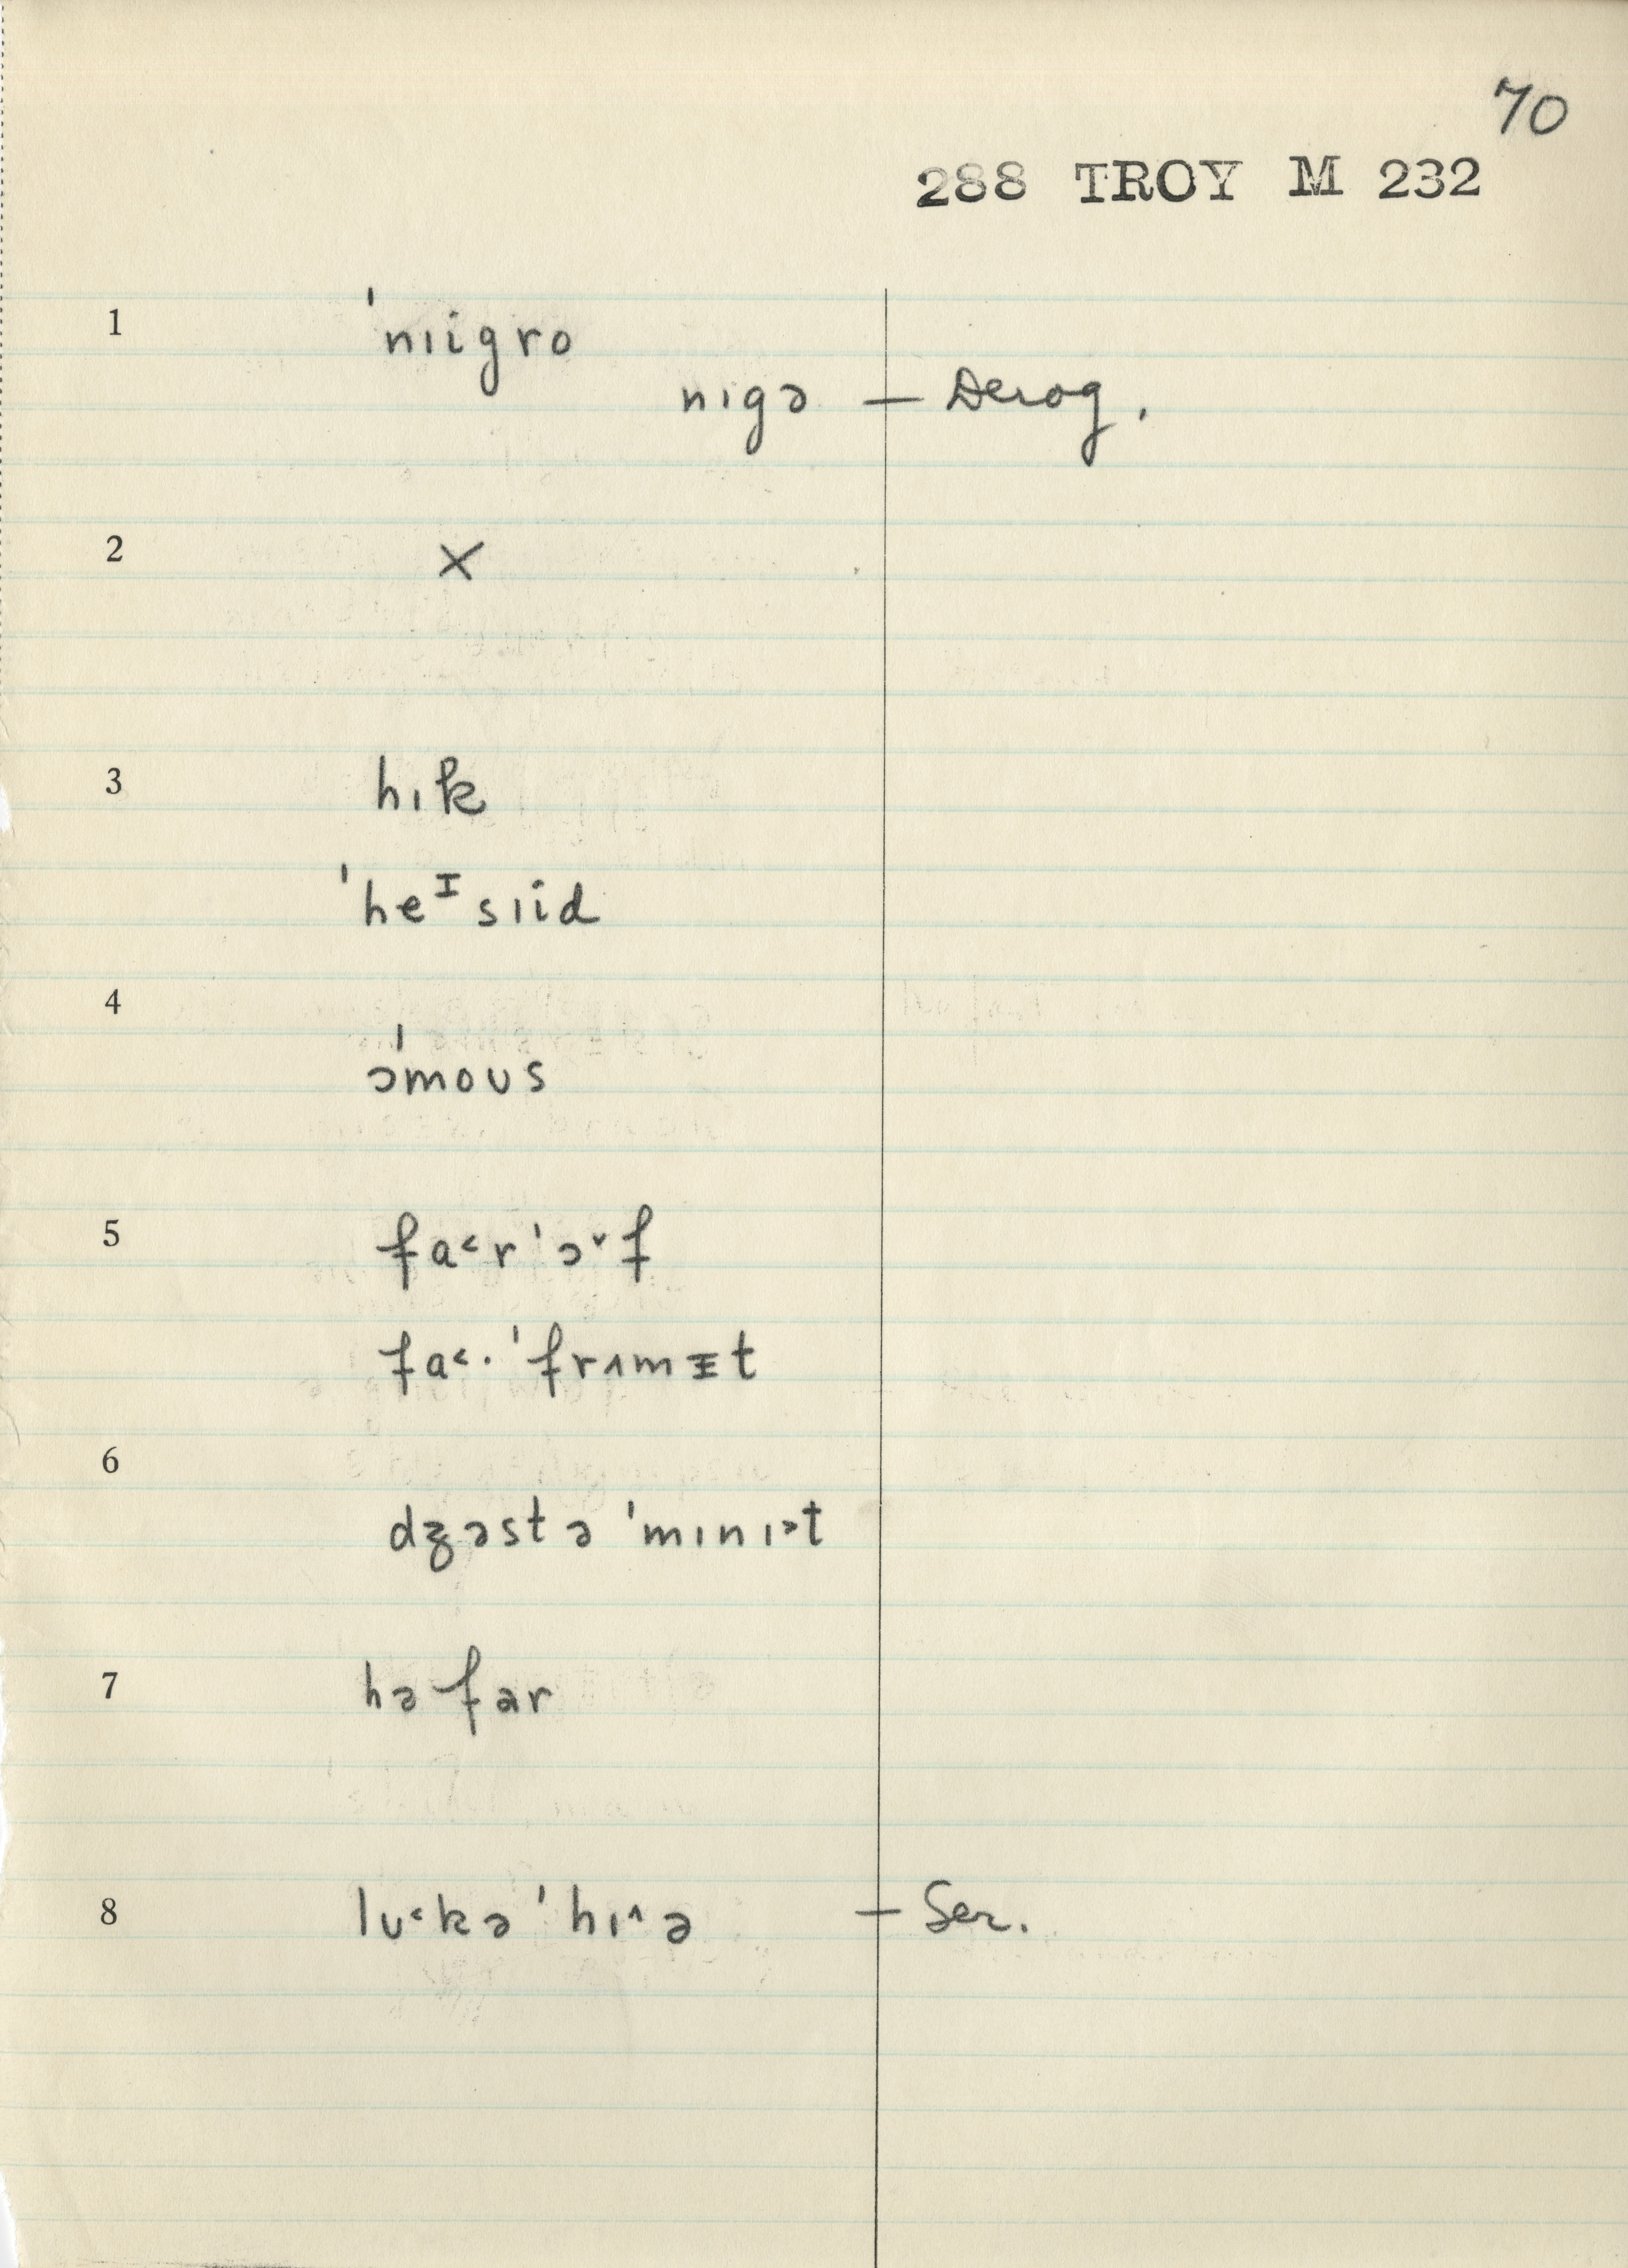 70
288 TROY M 232
1 ˈnɪigro
nɪgə — Derog.
2 ×
3 hɪk
ˈheᴵsɪid
4 əˈmoʊs
5 fa˂rˈɔ˅f
fa˂·ˈfrʌmᵻt
6 dʒəst ə ˈmɪnɪ˃t
7 hə far
8 lʊ˂kəˈhɪ˄ə — Ser.